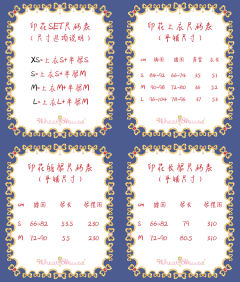 印花SET尺码表
（尺寸选项说明）
XS=上衣S+半裙S
S=上衣S+半裙M
M=上衣M+半裙M
L=上衣L+半裙M
印花上衣尺码表
（平铺尺寸）
cm 胸围 腰围 衣长
S 84-92 66-74 35 51
M 90-98 72-80 36 52
L 96-104 78-86 37 53
印花短裙尺码表
（平铺尺寸）
cm 腰围 裙长 裙摆围
S 66-82 53.5 230
M 72-90 55 230
印花长裙尺码表
（平铺尺寸）
cm 腰围 裙长 裙摆围
S 66-82 79 310
M 72-90 80.5 310